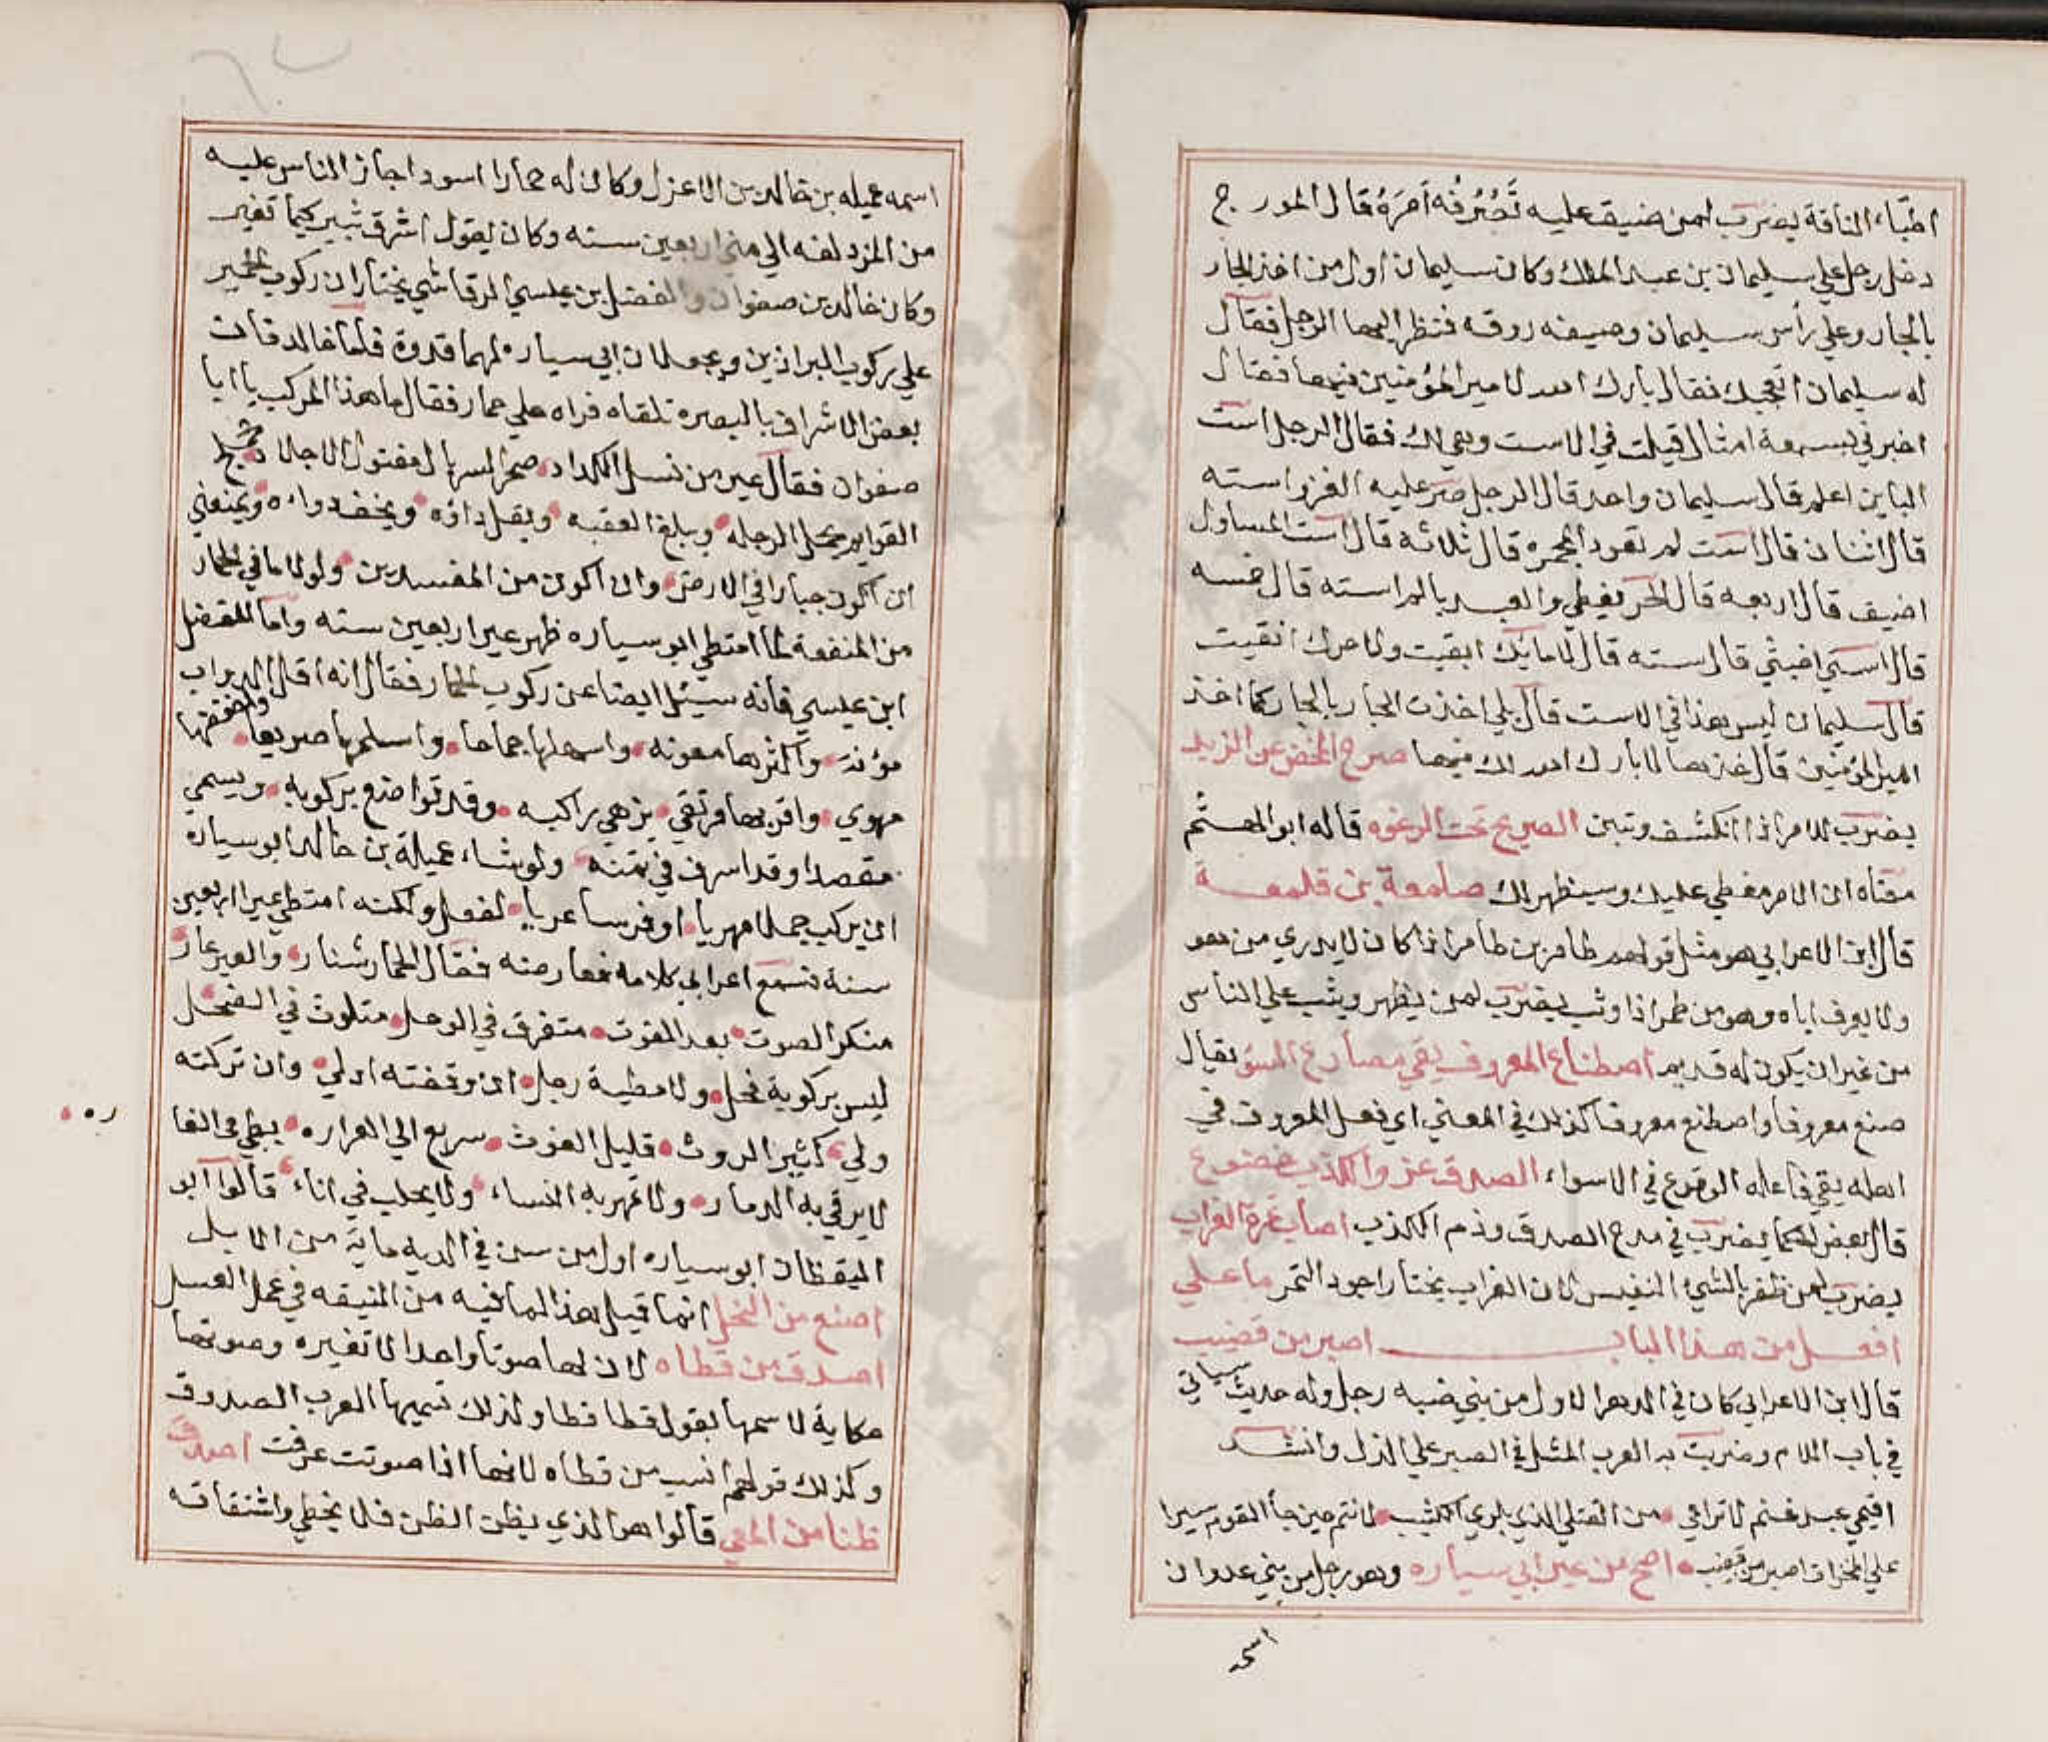 اطباء الناقة يضرب لمن ضيق عليه تصرفه أمره قال المورج
دخل رجل علي سليمان بن عبد الملك وكان سليمان اول من اخذ الجار
بالجار وعلي رأس سليمان وصيفه روقه فنظر اليها الرجل فقال
له سليمان اتعجبك فقال بارك الله لامير المؤمنين فيها فقال
اخبرني بسبعة امثال قيلت في الاست وهي لك فقال الرجل است
الباين اعلم قال سليمان واحد قال الرجل صر عليه الغزو استه
قال اثنان قال است لم تعود المجمره قال ثلاثه قال است المساول
اضيق قال اربعه قال الحر يعطي والعبد يالم استه قال خمسه
قال استي اخبثي قال سته قال لا مائك ابقيت ولا حرك انقيت
قال سليمان ليس هذا في الاست قال بلي اخذت الجار بالجار كما اخذ
امير المؤمنين قال خذها لا بارك الله لك فيها صرح المخض عن الزبد
يضرب للامر اذا انكشف وتبين الصريح تحت الرغوه قاله ابو الهيثم
معناه ان الامر مغطي عليك وسيظهر لك صلمعة بن قلمعة
قال ابن الاعرابي هو مثل قولهم طامر بن طامر اذا كان لا يدري من هو
ولا يعرف اباه وهو من طمر اذا وثب يضرب لمن يظهر ويثب علي الناس
من غير ان يكون له قديم اصطناع المعروف يقي مصارع السؤ يقال
صنع معروفا واصطنع معروفا كذلك في المعني اي فعل المعروف في
اهله يقي فاعله الوقوع في الاسواء الصدق عز والكذب خضوع
قال بعض الحكما يضرب في مدح الصدق وذم الكذب اصاب تمرة الغراب
يضرب لمن ظفر بالشئ النفيس لان الغراب يختار اجود التمر ما علي
افعل من هذا الباب اصبر من قضيب
قال ابن الاعرابي كان في الدهر الاول من بني ضبه رجل وله حديث سياتي
في باب اللام وضربت به العرب المثل في الصبر علي الذل وانشد
اقيمي عبد غنم لا تراعي من القتلي الذي بلوي الكثيب لانتم حين جا القوم سيرا
علي المخزاة اصبر من قضيب اصح من عير ابي سياره وهو رجل من بني عدوان
اسمه
اسمه عميله بن خالد بن الاعزل وكان له حمارا اسود اجاز الناس عليه
من المزدلفه الي مني اربعين سنه وكان يقول اشرق ثبير كيما نغير
وكان خالد بن صفوان والفضل بن عيسي الرقاشي يختاران ركوب الحمير
علي ركوب البراذين ويجعلان ابي سياره لهما قدوة فاما خالد فان
بعض الاشراف بالبصره تلقاه فراه علي حمار فقال ما هذا المركب يا ابا
صفوان فقال عير من نسل الكداد صحر السربال مفتول الاجلاد محملج
القوايم يحمل الرجله ويبلغ العقبه ويقل داؤه ويخف دواءه ويمنعني
ان اكون جبارا في الارض وان اكون من المفسدين ولولا ما في الحمار
من المنفعة لما امتطي ابو سياره ظهر عير اربعين سنه واما الفضل
ابن عيسي فانه سئل ايضا عن ركوب الحمار فقال انه اقل الدواب
مؤنة واكثرها معونه واسهلها جماحا واسلمها صريعا واخفضها
مهوي واقربها مرتقي يزهي راكبه وقد تواضع بركوبه ويسمي
مقصدا وقد اسرف في ثمنه ولو شاء عميلة بن خالد ابو سياره
ان يركب جملا مهريا او فرسا عربيا لفعل ولكنه امتطي عيرا اربعين
سنة فسمع اعرابي كلامه فعارضه فقال الحمار شنار والعير عار
منكر الصوت بعد الفوت متفرق في الوحل متلوث في الضحل
ليس بركوبة فحل ولا مطية رجل ان وقفته ادلي وان تركته
ولي كثير الروث قليل الغوث سريع الي الغراره بطي في الغا
ره
لا يرقي به الدمار ولا تمهر به النساء ولا يحلب في اناء قالوا ابو
اليقظان ابو سياره اول من سن في الديه ماية من الابل
اصنع من النحل انما قيل هذا لما فيه من النيقه في عمل العسل
اصدق من قطاه لان لها صوتا واحدا لا تغيره وصوتها
حكاية لاسمها بقول قطا قطا ولذلك تسميها العرب الصدوق
وكذلك قولهم انسب من قطاه لانها اذا صوتت عرفت اصدق
ظنا من المعي قالوا هو الذي يظن الظن فلا يخطي واشتقاقه